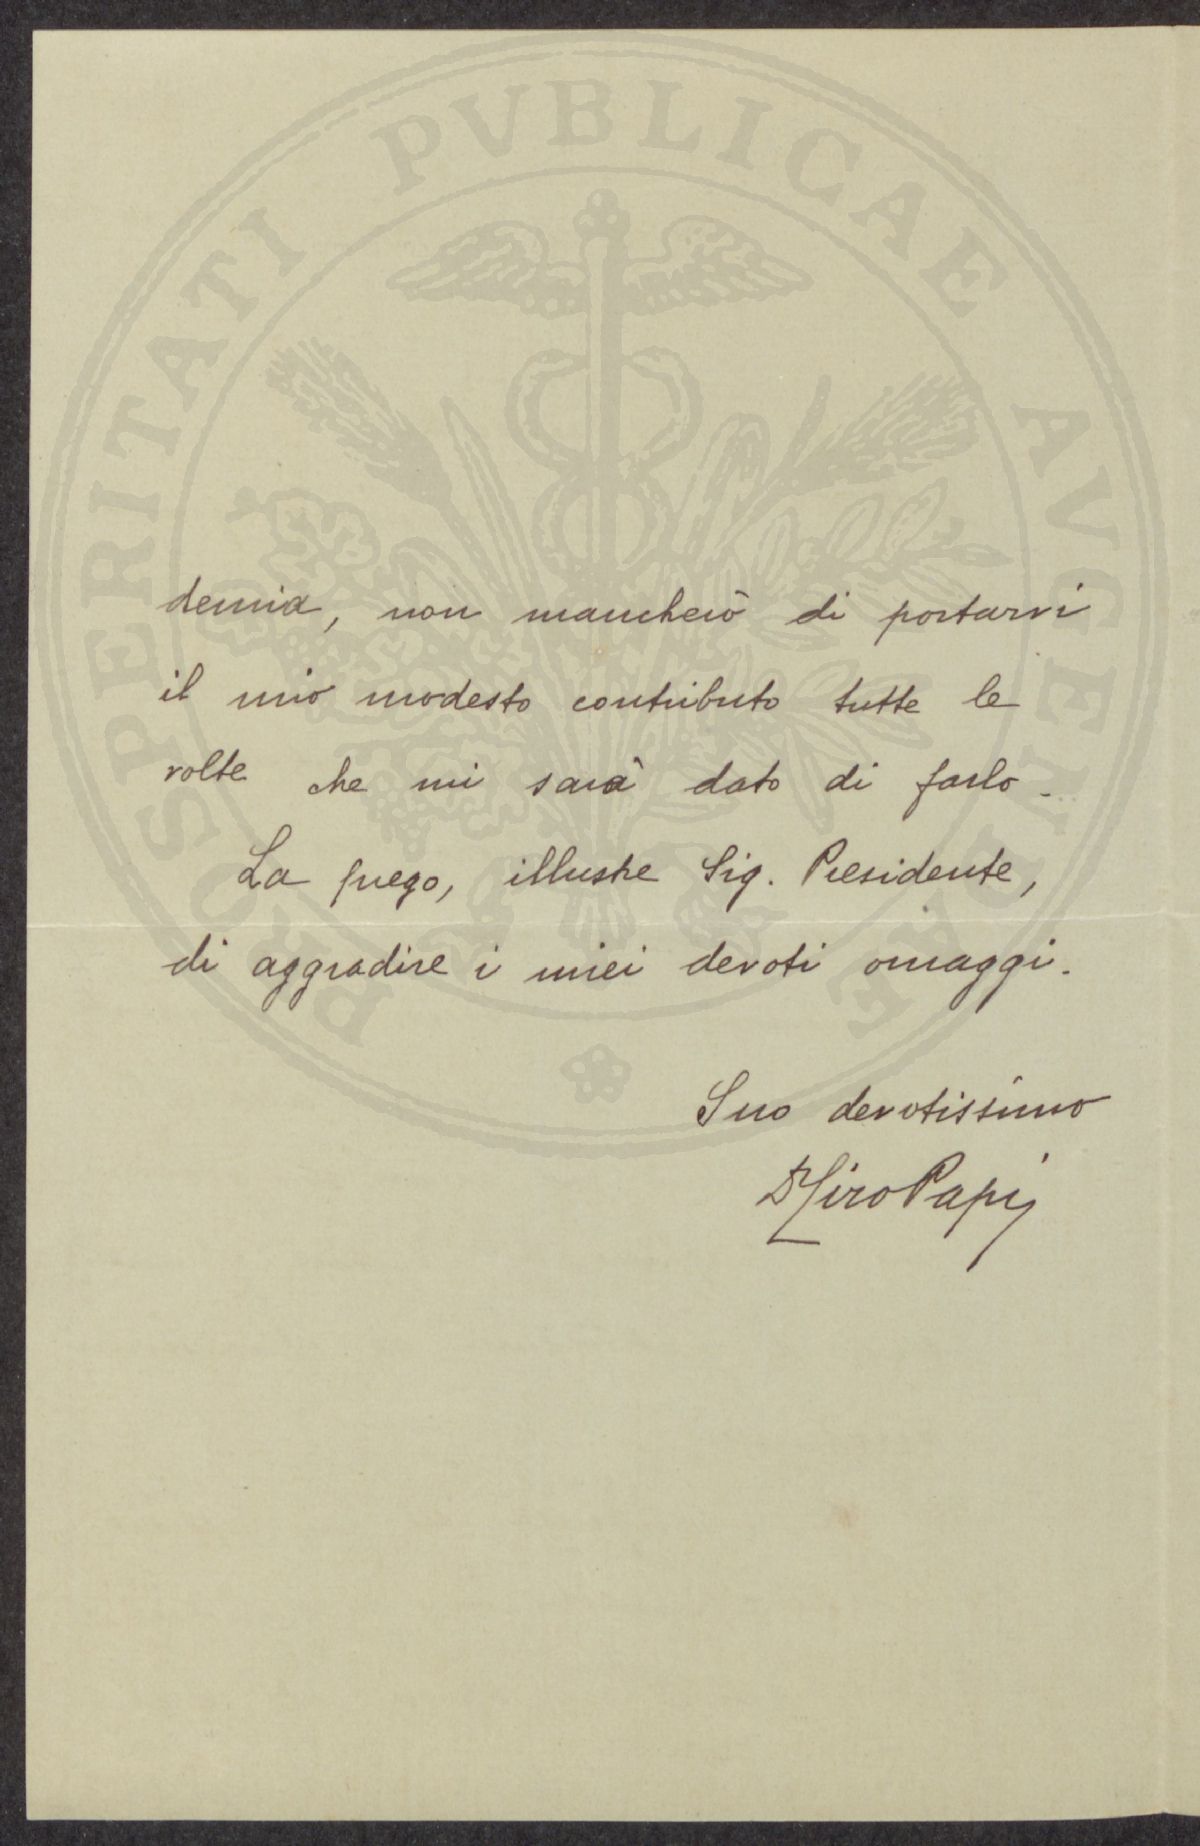 PROSPERITATI PVBLICAE AVGENDAE
demia, non mancherò di portarvi
il mio modesto contributo tutte le
volte che mi sarà dato di farlo.
La prego, illustre Sig. Presidente,
di aggradire i miei devoti omaggi.
Suo devotissimo
Papi